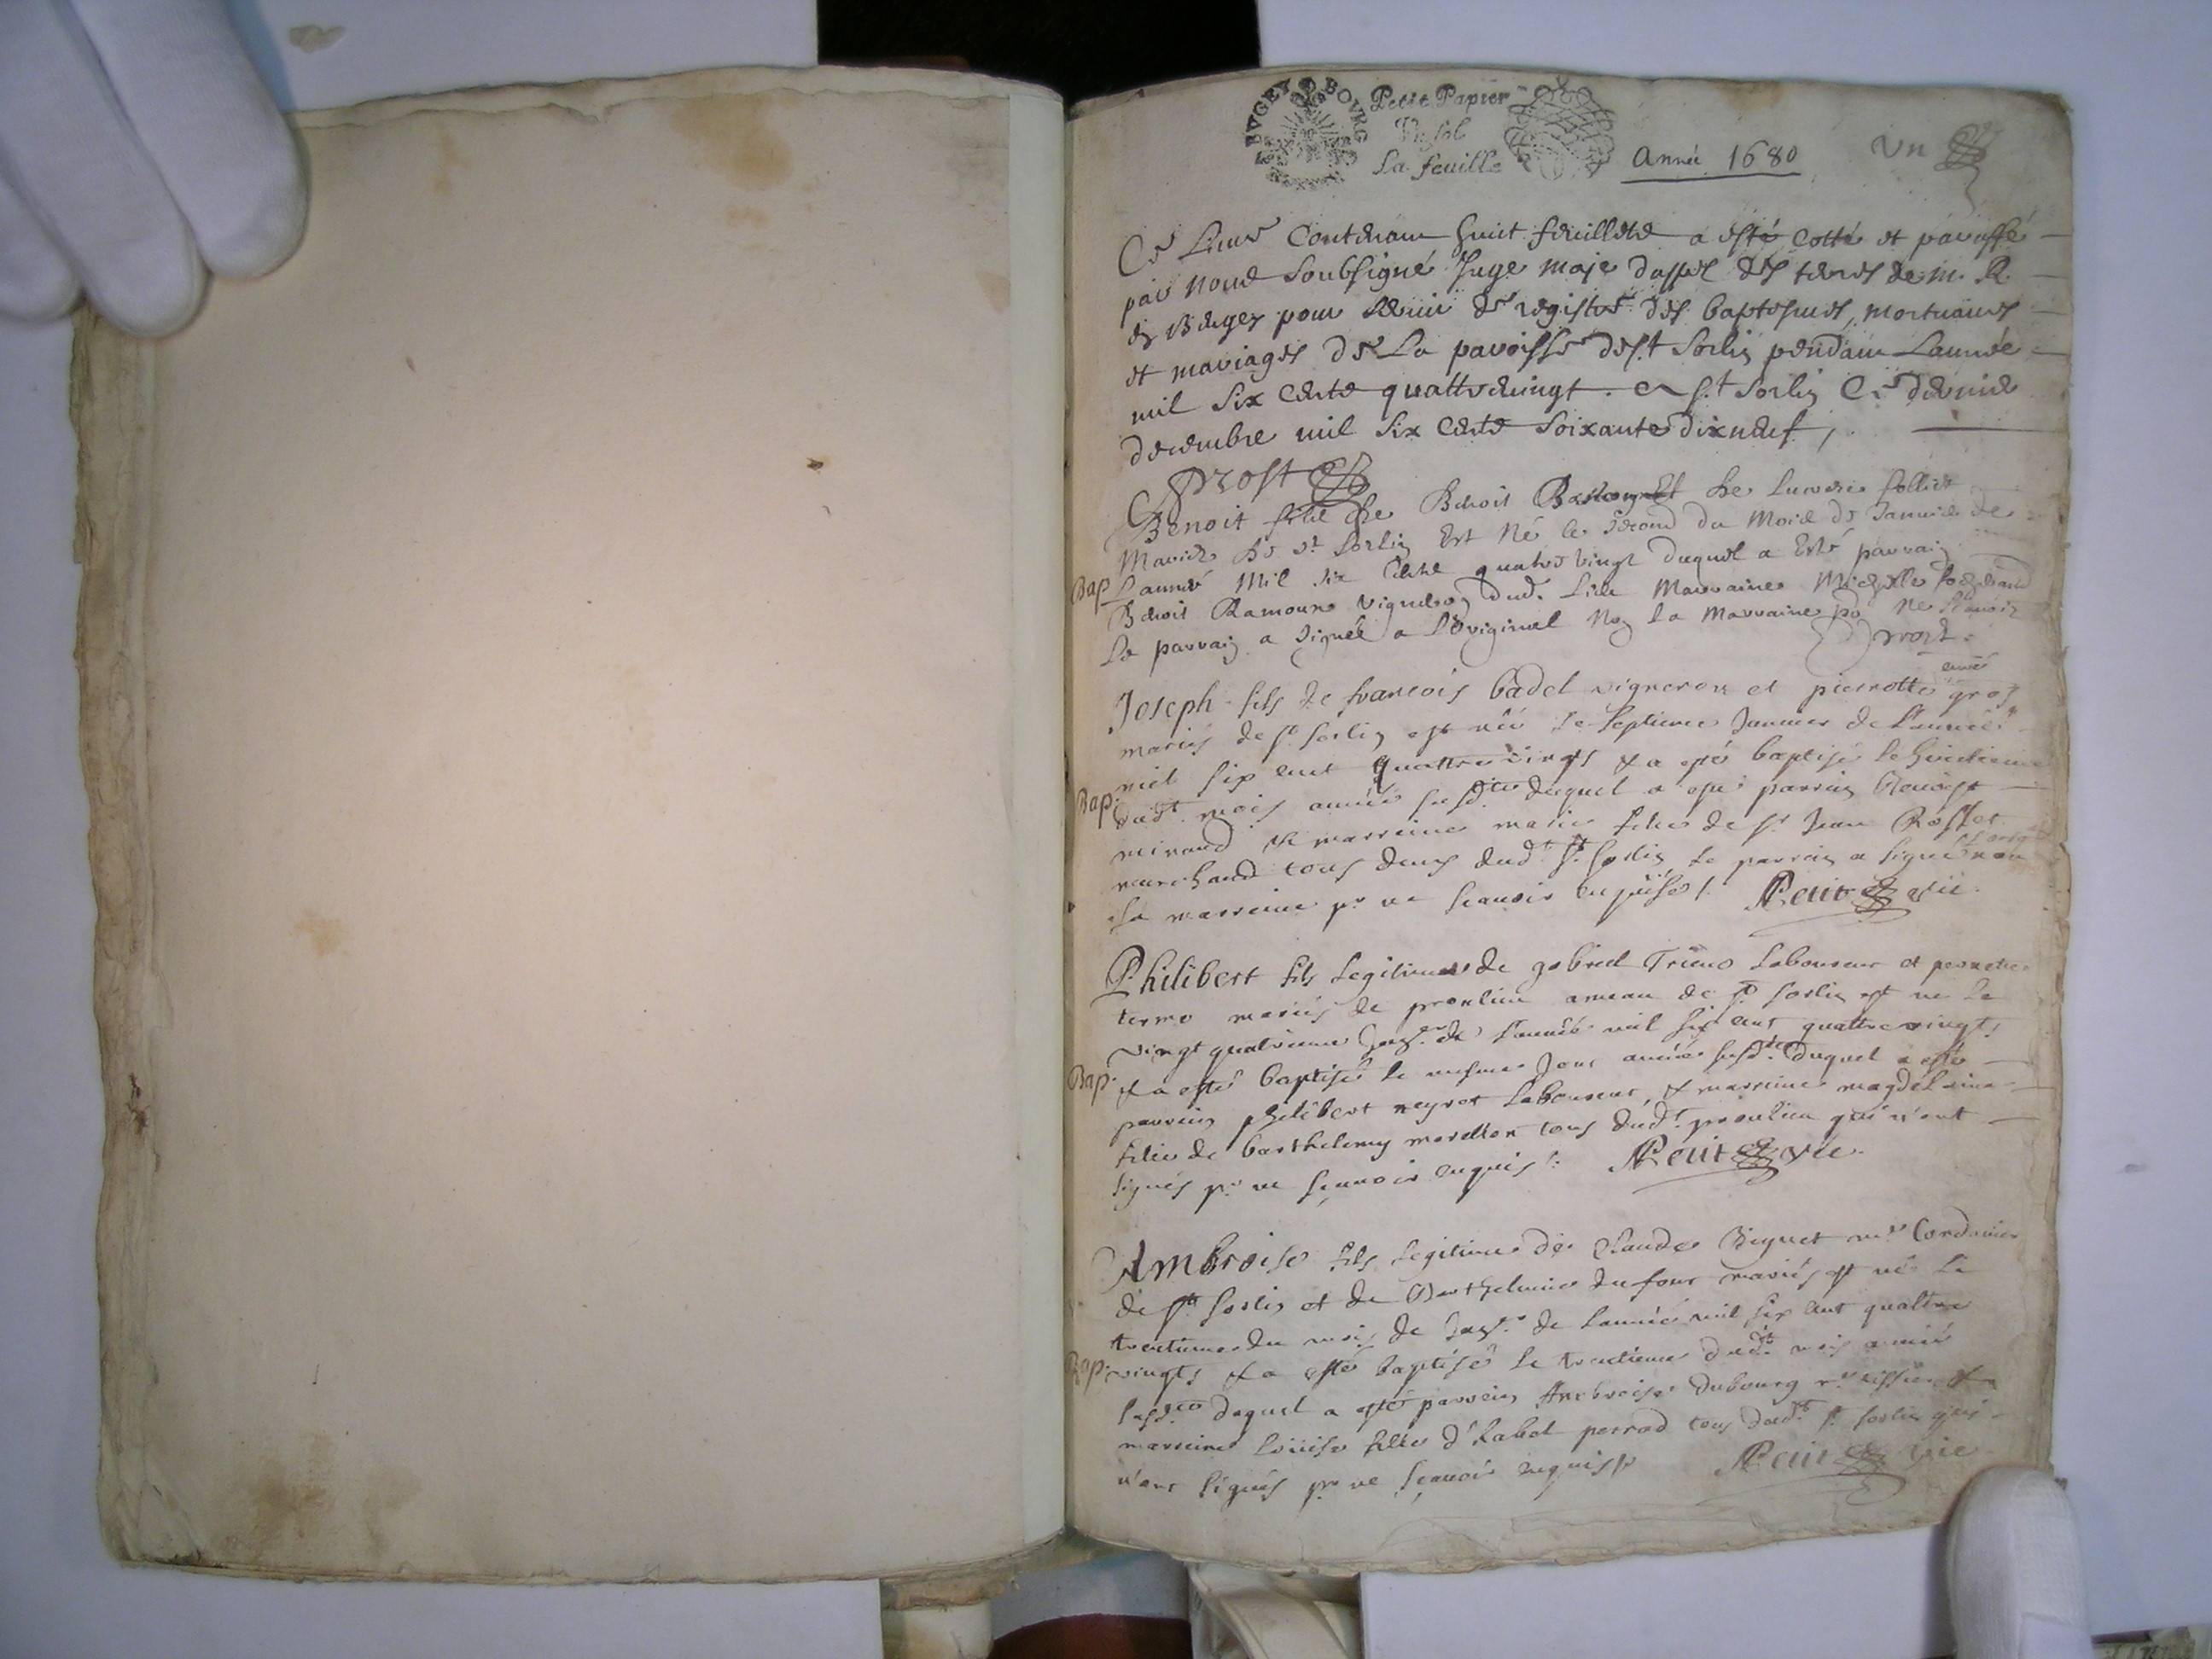 BVGEY BOVRG
Petit Papier
Un sol
La feuille
Année 1680
Un
Ce Livre Contenant huict feuilletz a esté cotté et paraffé
par nous Soubsigné Juge maje dappel des terres de m. R.
en Bugey pour servir de registre des baptesmes, mortuaires
et mariages de La paroisse de s.t Sorlin pendant Lannée
mil Six Centz quattrevingt. A s.t Sorlin Ce dernier
decembre mil Six Centz Soixante dixneuf,
Prost
Benoit filz de Benoit et de Lucresse
Mariez de st Sorlin Est Né le Second du Mois de Janvier de
Bap
Lannée Mil Six Centz quatre vingt duquel a Esté parrain
Benoit Ramour vigneron dud. Lieu Marraine Michelle
Le parrain a Signé a Loriginal Non La Marraine po. Ne Scavoir
Prost
Joseph fils de francois badel vigneron et pierrotte gros
mariés de st Sorlin est né le septieme Janvier de l'année
Bap.
mil six cent quattrevingts & a esté baptisé le huictieme
dudt. mois année susdtte duquel a esté parrain Benoist
miraud & marreine marie fille de sr Jean Rosset
marchand tous deux dudt. st. Sorlin le parrain a signé non
la marreine pr ne scavoir enquise. Petit vic.
Philibert fils legitime de gabriel Laboureur et
termo mariés de proulieu ameau de st Sorlin est né le
vingt quatrieme de l'année mil six cent quattrevingts
Bap.
& a esté baptisé le mesme Jour année susdtte duquel a esté
parrain philibert neyret Laboureur, & marreine magdeleine
fille de barthelemy morellon tous dudt. proulieu qui n'ont
signés pr ne scavoir enquis. Petit vic.
Ambroise fils legitime de Claude Biguet me Cordonier
de st Sorlin et de Barthelemie dufour mariés est né le
trentieme du mois de de l'année mil six cent quattre
Bap.
vingts & a esté baptisé le trentieme dudt. mois année
susdtte duquel a esté parrain Ambroise Dubourg me &
marreine Louise fille d'Isabel perrod tous dudt. st Sorlin qui
n'ont signés pr ne scavoir enquis Petit vic